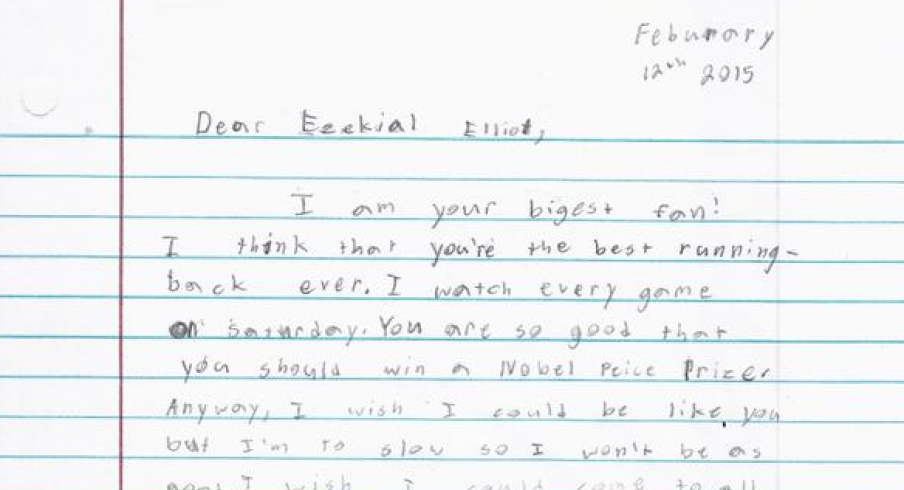 Feburary
12th 2015
Dear Ezekial Elliot,
I am your bigest fan!
I think that you're the best running-
back ever. I watch every game
on saturday. You are so good that
you should win a Nobel Peice Prize.
Anyway, I wish I could be like you
but I'm to slow so I won't be as
I wish I could come to all